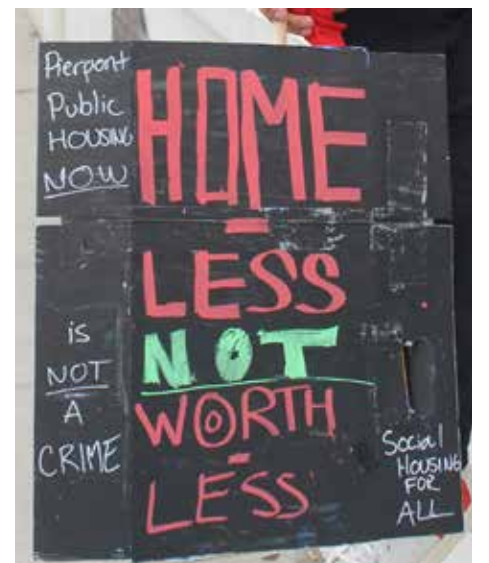 Pierpont
Public
HOUSING
NOW
HOME
-
LESS
NOT
WORTH
-
LESS
is
NOT
A
CRIME
Social
HOUSING
FOR
ALL